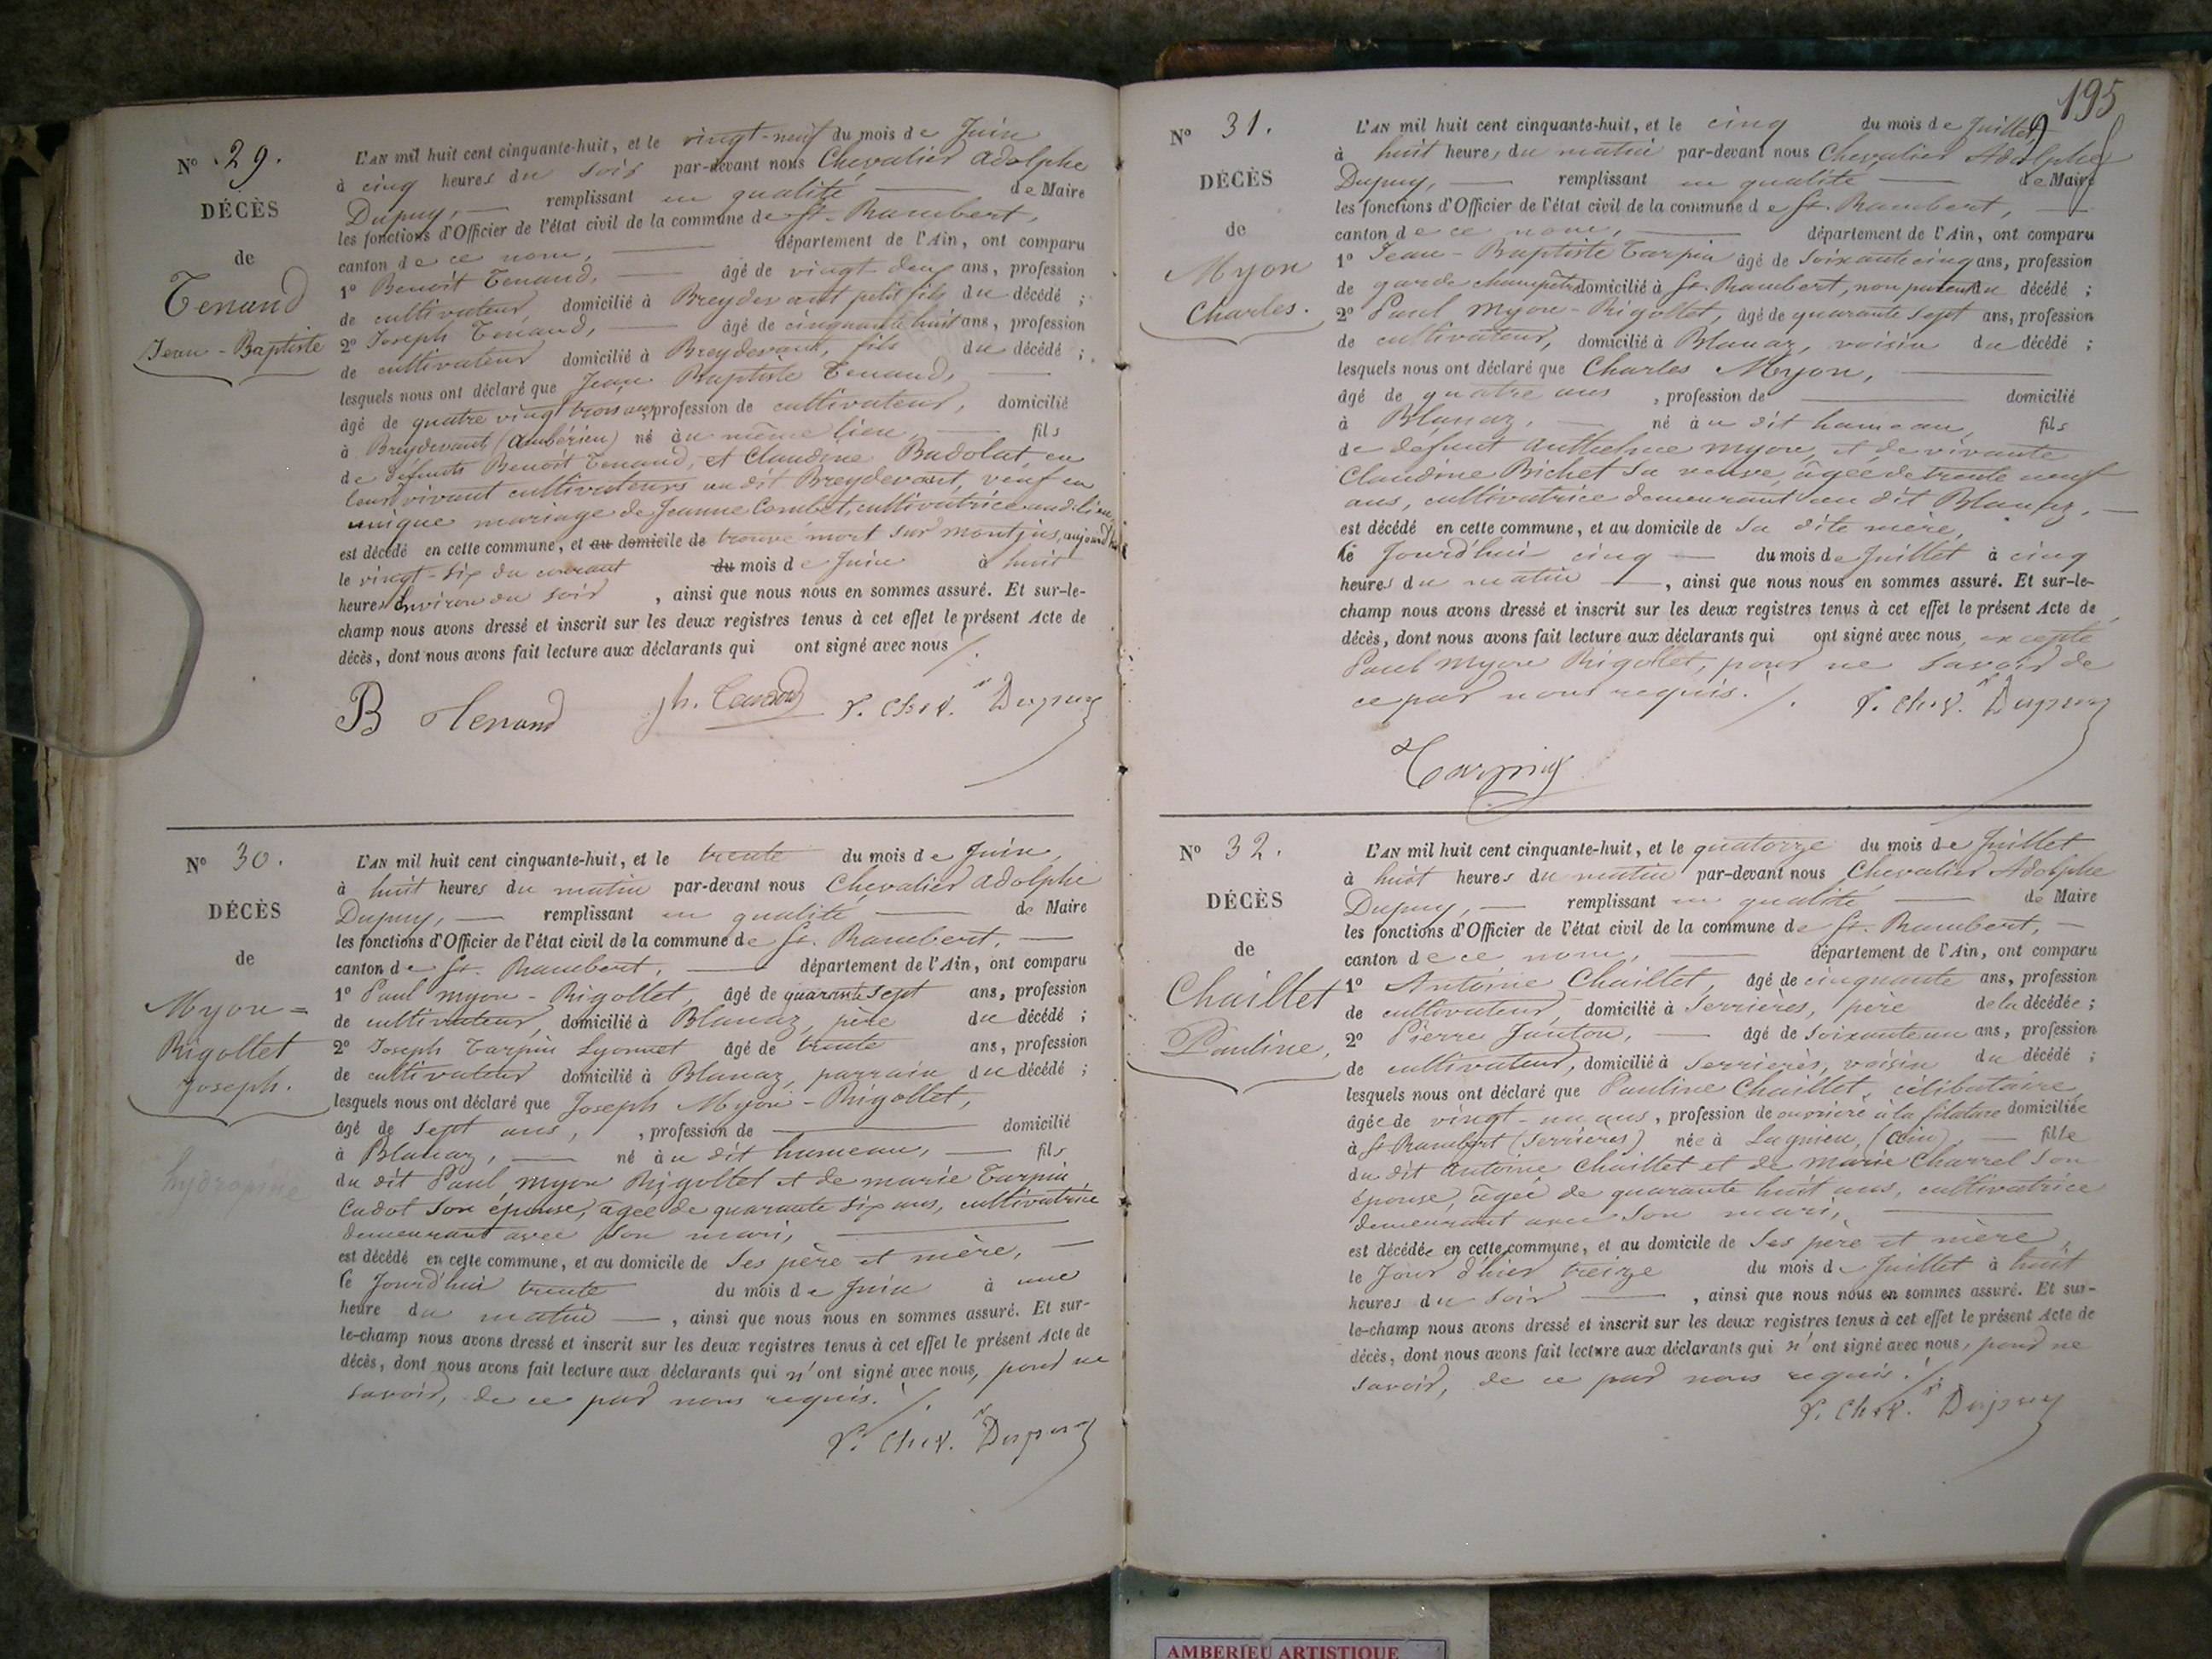 N° 29.
DÉCÈS
de
Tenand
Jean-Baptiste
L'AN mil huit cent cinquante-huit, et le vingt-neuf du mois de Juin
à cinq heures du soir par-devant nous Chevalier Adolphe
Dupuy, remplissant en qualité de Maire
les fonctions d'Officier de l'état civil de la commune de St. Rambert,
canton de ce nom, département de l'Ain, ont comparu
1° Benoit Tenand, âgé de vingt deux ans, profession
de cultivateur, domicilié à Breydevant petit fils du décédé ;
2° Joseph Tenand, âgé de cinquante huit ans, profession
de cultivateur domicilié à Breydevant, fils du décédé ;
lesquels nous ont déclaré que Jean Baptiste Tenand,
âgé de quatre vingt trois ans, profession de cultivateur, domicilié
à Breydevant (Ambérieu) né au même lieu, fils
de défunts Benoit Tenand, et Claudine Badolat, en
leur vivant cultivateurs au dit Breydevant, veuf en
unique mariage de Jeanne Combet, cultivatrice audit lieu,
est décédé en cette commune, et au domicile de trouvé mort sur Montjus,
le vingt-six du courant du mois de Juin à huit
heures environ du soir, ainsi que nous nous en sommes assuré. Et sur-le-
champ nous avons dressé et inscrit sur les deux registres tenus à cet effet le présent Acte de
décès, dont nous avons fait lecture aux déclarants qui ont signé avec nous ./.
B Tenand Jh. Tenand Chev. Dupuy
N° 30.
DÉCÈS
de
Myon=
Rigollet
Joseph.
hydropisie
L'AN mil huit cent cinquante-huit, et le trente du mois de Juin,
à huit heures du matin par-devant nous Chevalier Adolphe
Dupuy, remplissant en qualité de Maire
les fonctions d'Officier de l'état civil de la commune de St. Rambert,
canton de St. Rambert, département de l'Ain, ont comparu
1° Paul Myon-Rigollet, âgé de quarante sept ans, profession
de cultivateur, domicilié à Blanaz, père du décédé ;
2° Joseph Tarpin Lyonnet âgé de trente ans, profession
de cultivateur domicilié à Blanaz, parrain du décédé ;
lesquels nous ont déclaré que Joseph Myon-Rigollet,
âgé de sept ans, , profession de domicilié
à Blanaz, né au dit hameau, fils
du dit Paul Myon Rigollet et de Marie Tarpin
Cadot son épouse, âgée de quarante six ans, cultivatrice
demeurant avec son mari,
est décédé en cette commune, et au domicile de ses père et mère,
le Jourd'hui trente du mois de Juin à une
heure du matin, ainsi que nous nous en sommes assuré. Et sur-
le-champ nous avons dressé et inscrit sur les deux registres tenus à cet effet le présent Acte de
décès, dont nous avons fait lecture aux déclarants qui n'ont signé avec nous, pour ne
savoir, de ce par nous requis. ./.
Chev. Dupuy
195
N° 31.
DÉCÈS
de
Myon
Charles.
L'AN mil huit cent cinquante-huit, et le cinq du mois de Juillet,
à huit heures du matin par-devant nous Chevalier Adolphe
Dupuy, remplissant en qualité de Maire
les fonctions d'Officier de l'état civil de la commune de St. Rambert,
canton de ce nom, département de l'Ain, ont comparu
1° Jean-Baptiste Tarpin âgé de soixante cinq ans, profession
de garde champêtre domicilié à St. Rambert, non parent du décédé ;
2° Paul Myon-Rigollet, âgé de quarante sept ans, profession
de cultivateur, domicilié à Blanaz, voisin du décédé ;
lesquels nous ont déclaré que Charles Myon,
âgé de quatre ans , profession de domicilié
à Blanaz, né au dit hameau, fils
de défunt Anthelme Myon, et de vivante
Claudine Bichet sa veuve, âgée de trente neuf
ans, cultivatrice demeurant au dit Blanaz,
est décédé en cette commune, et au domicile de sa dite mère,
le Jourd'hui cinq du mois de Juillet à cinq
heures du matin, ainsi que nous nous en sommes assuré. Et sur-le-
champ nous avons dressé et inscrit sur les deux registres tenus à cet effet le présent Acte de
décès, dont nous avons fait lecture aux déclarants qui ont signé avec nous, excepté
Paul Myon Rigollet, pour ne savoir de
ce par nous requis. ./. Chev. Dupuy
Tarpin
N° 32.
DÉCÈS
de
Chaillet
Pauline,
L'AN mil huit cent cinquante-huit, et le quatorze du mois de Juillet
à huit heures du matin par-devant nous Chevalier Adolphe
Dupuy, remplissant en qualité de Maire
les fonctions d'Officier de l'état civil de la commune de St. Rambert,
canton de ce nom, département de l'Ain, ont comparu
1° Antoine Chaillet, âgé de cinquante ans, profession
de cultivateur, domicilié à Serrières, père de la décédée ;
2° Pierre Janton, âgé de soixante un ans, profession
de cultivateur, domicilié à Serrières, voisin du décédé ;
lesquels nous ont déclaré que Pauline Chaillet, célibataire
âgée de vingt-un ans, profession de ouvrière à la filature domiciliée
à St Rambert (Serrières) née à Lagnieu, (Ain), fille
du dit Antoine Chaillet et de Marie Charrel son
épouse, âgée de quarante huit ans, cultivatrice
demeurant avec son mari,
est décédée en cette commune, et au domicile de ses père et mère,
le Jour d'hier treize du mois de Juillet à huit
heures du soir, ainsi que nous nous en sommes assuré. Et sur-
le-champ nous avons dressé et inscrit sur les deux registres tenus à cet effet le présent Acte de
décès, dont nous avons fait lecture aux déclarants qui n'ont signé avec nous, pour ne
savoir, de ce par nous requis. ./.
Chev. Dupuy
AMBERIEU ARTISTIQUE